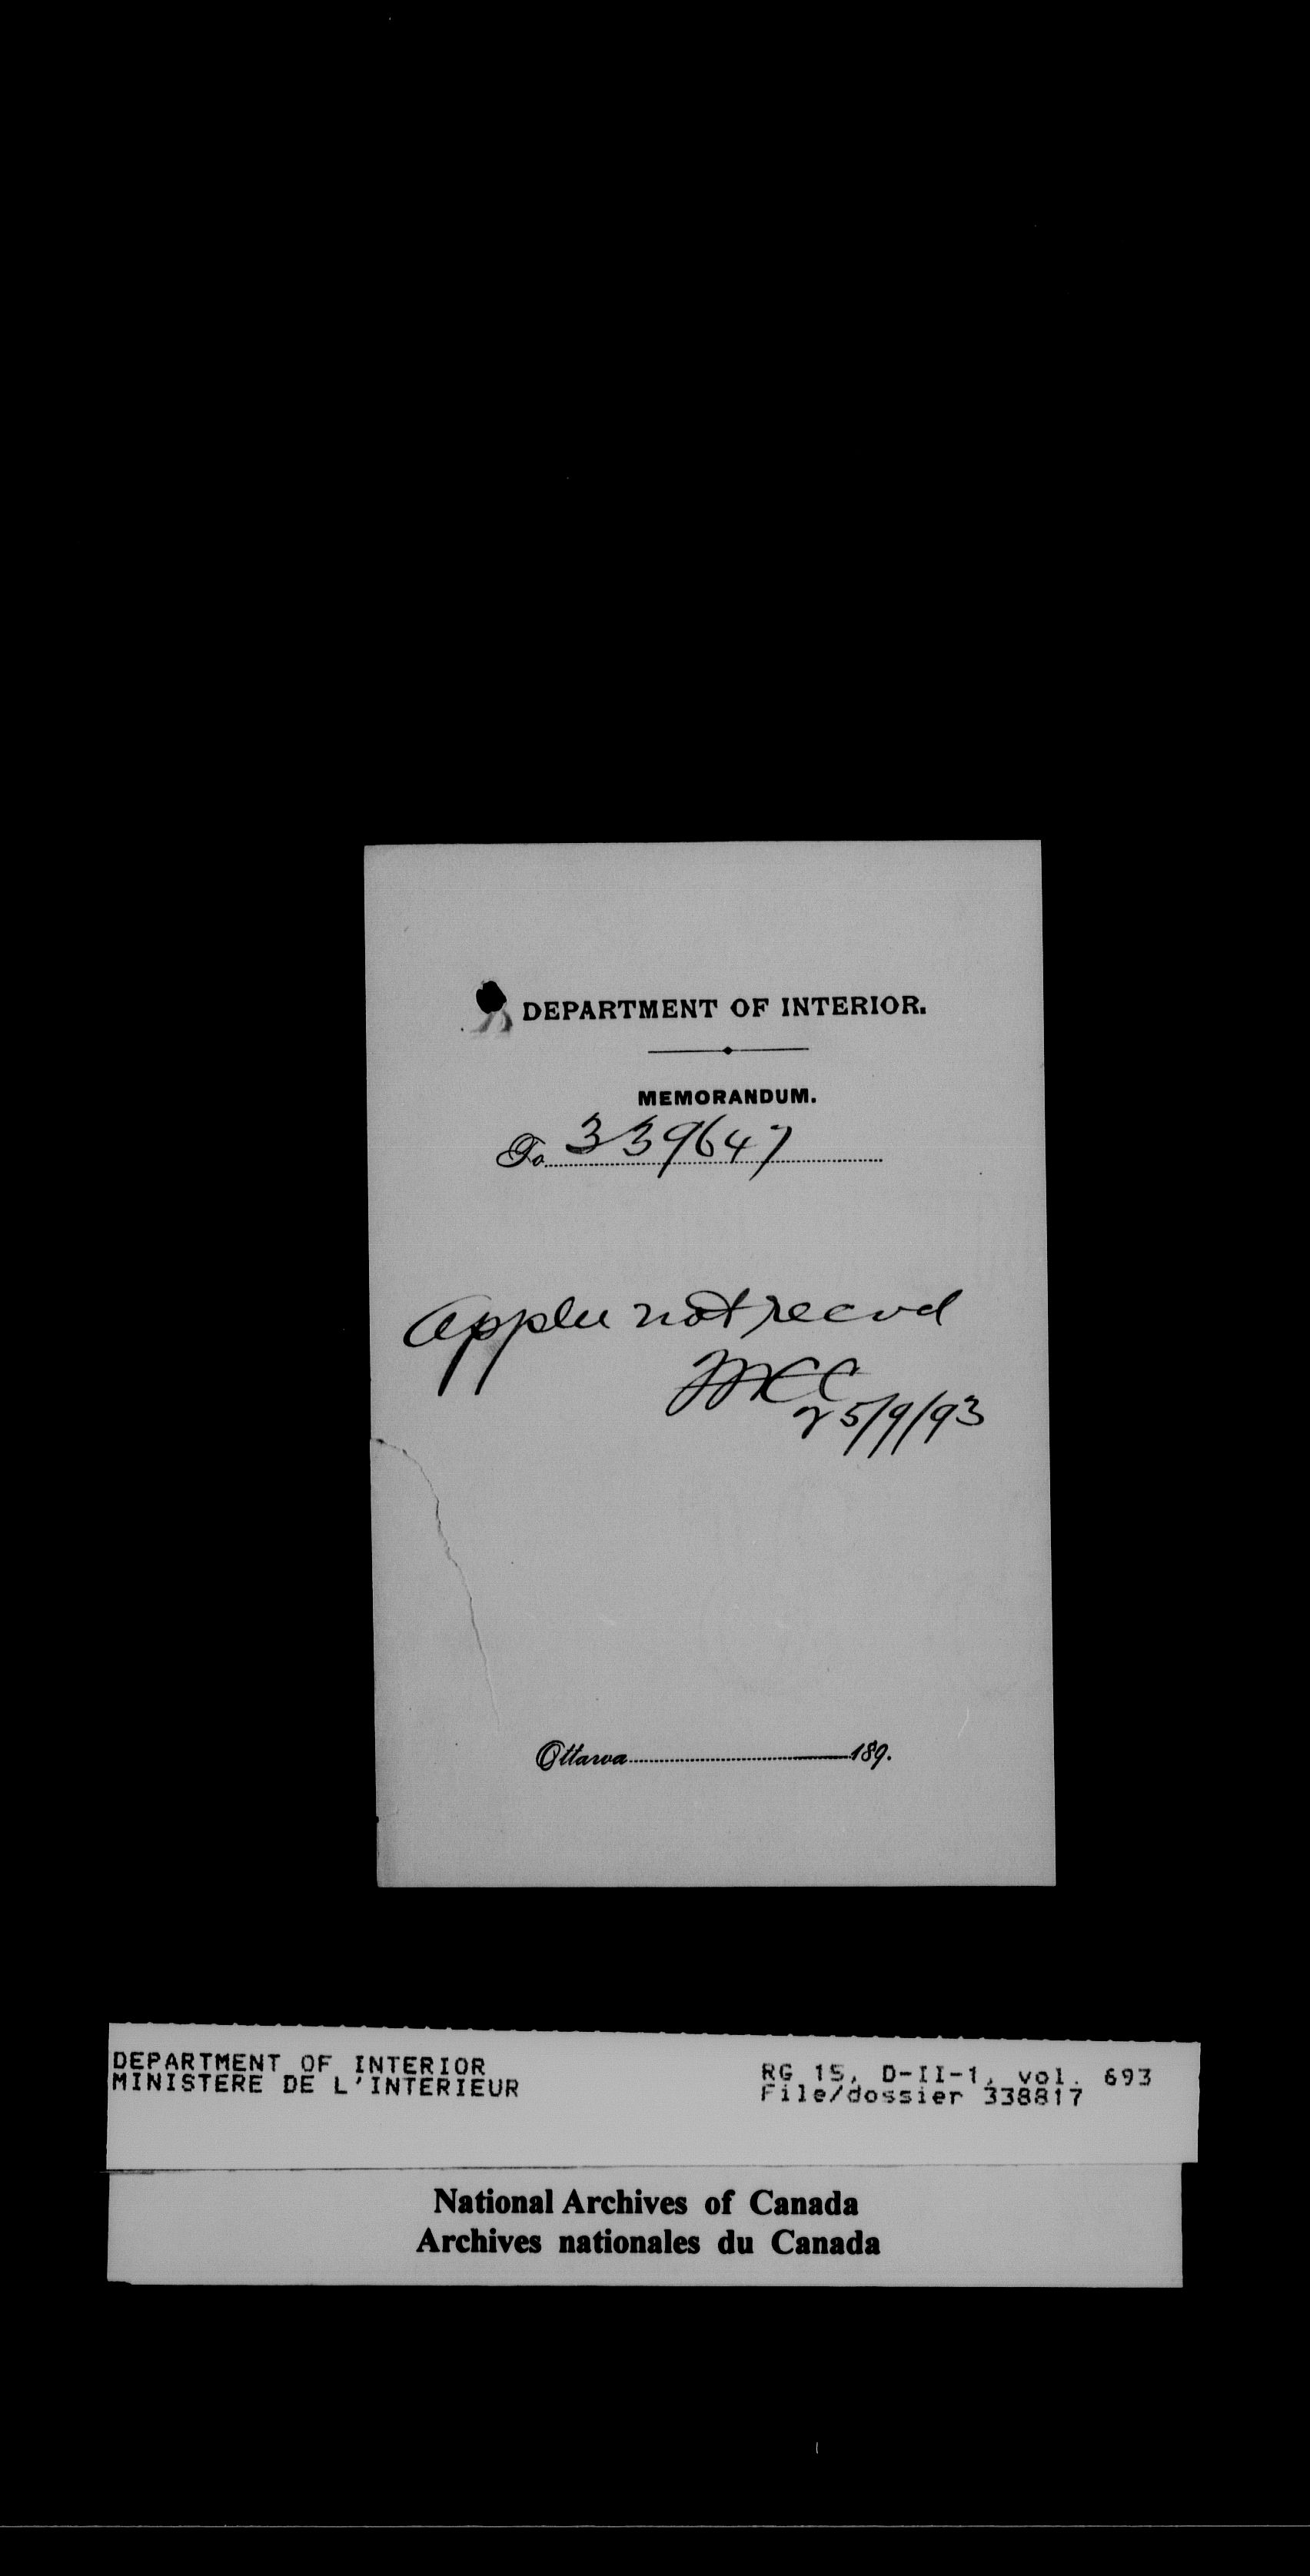 DEPARTMENT OF INTERIOR.
MEMORANDUM.
To 339647
not recvd
25/9/93
Ottawa 189.
DEPARTMENT OF INTERIOR
MINISTERE DE L'INTERIEUR
RG 15, D-II-1, vol. 693
File/dossier 338817
National Archives of Canada
Archives nationales du Canada